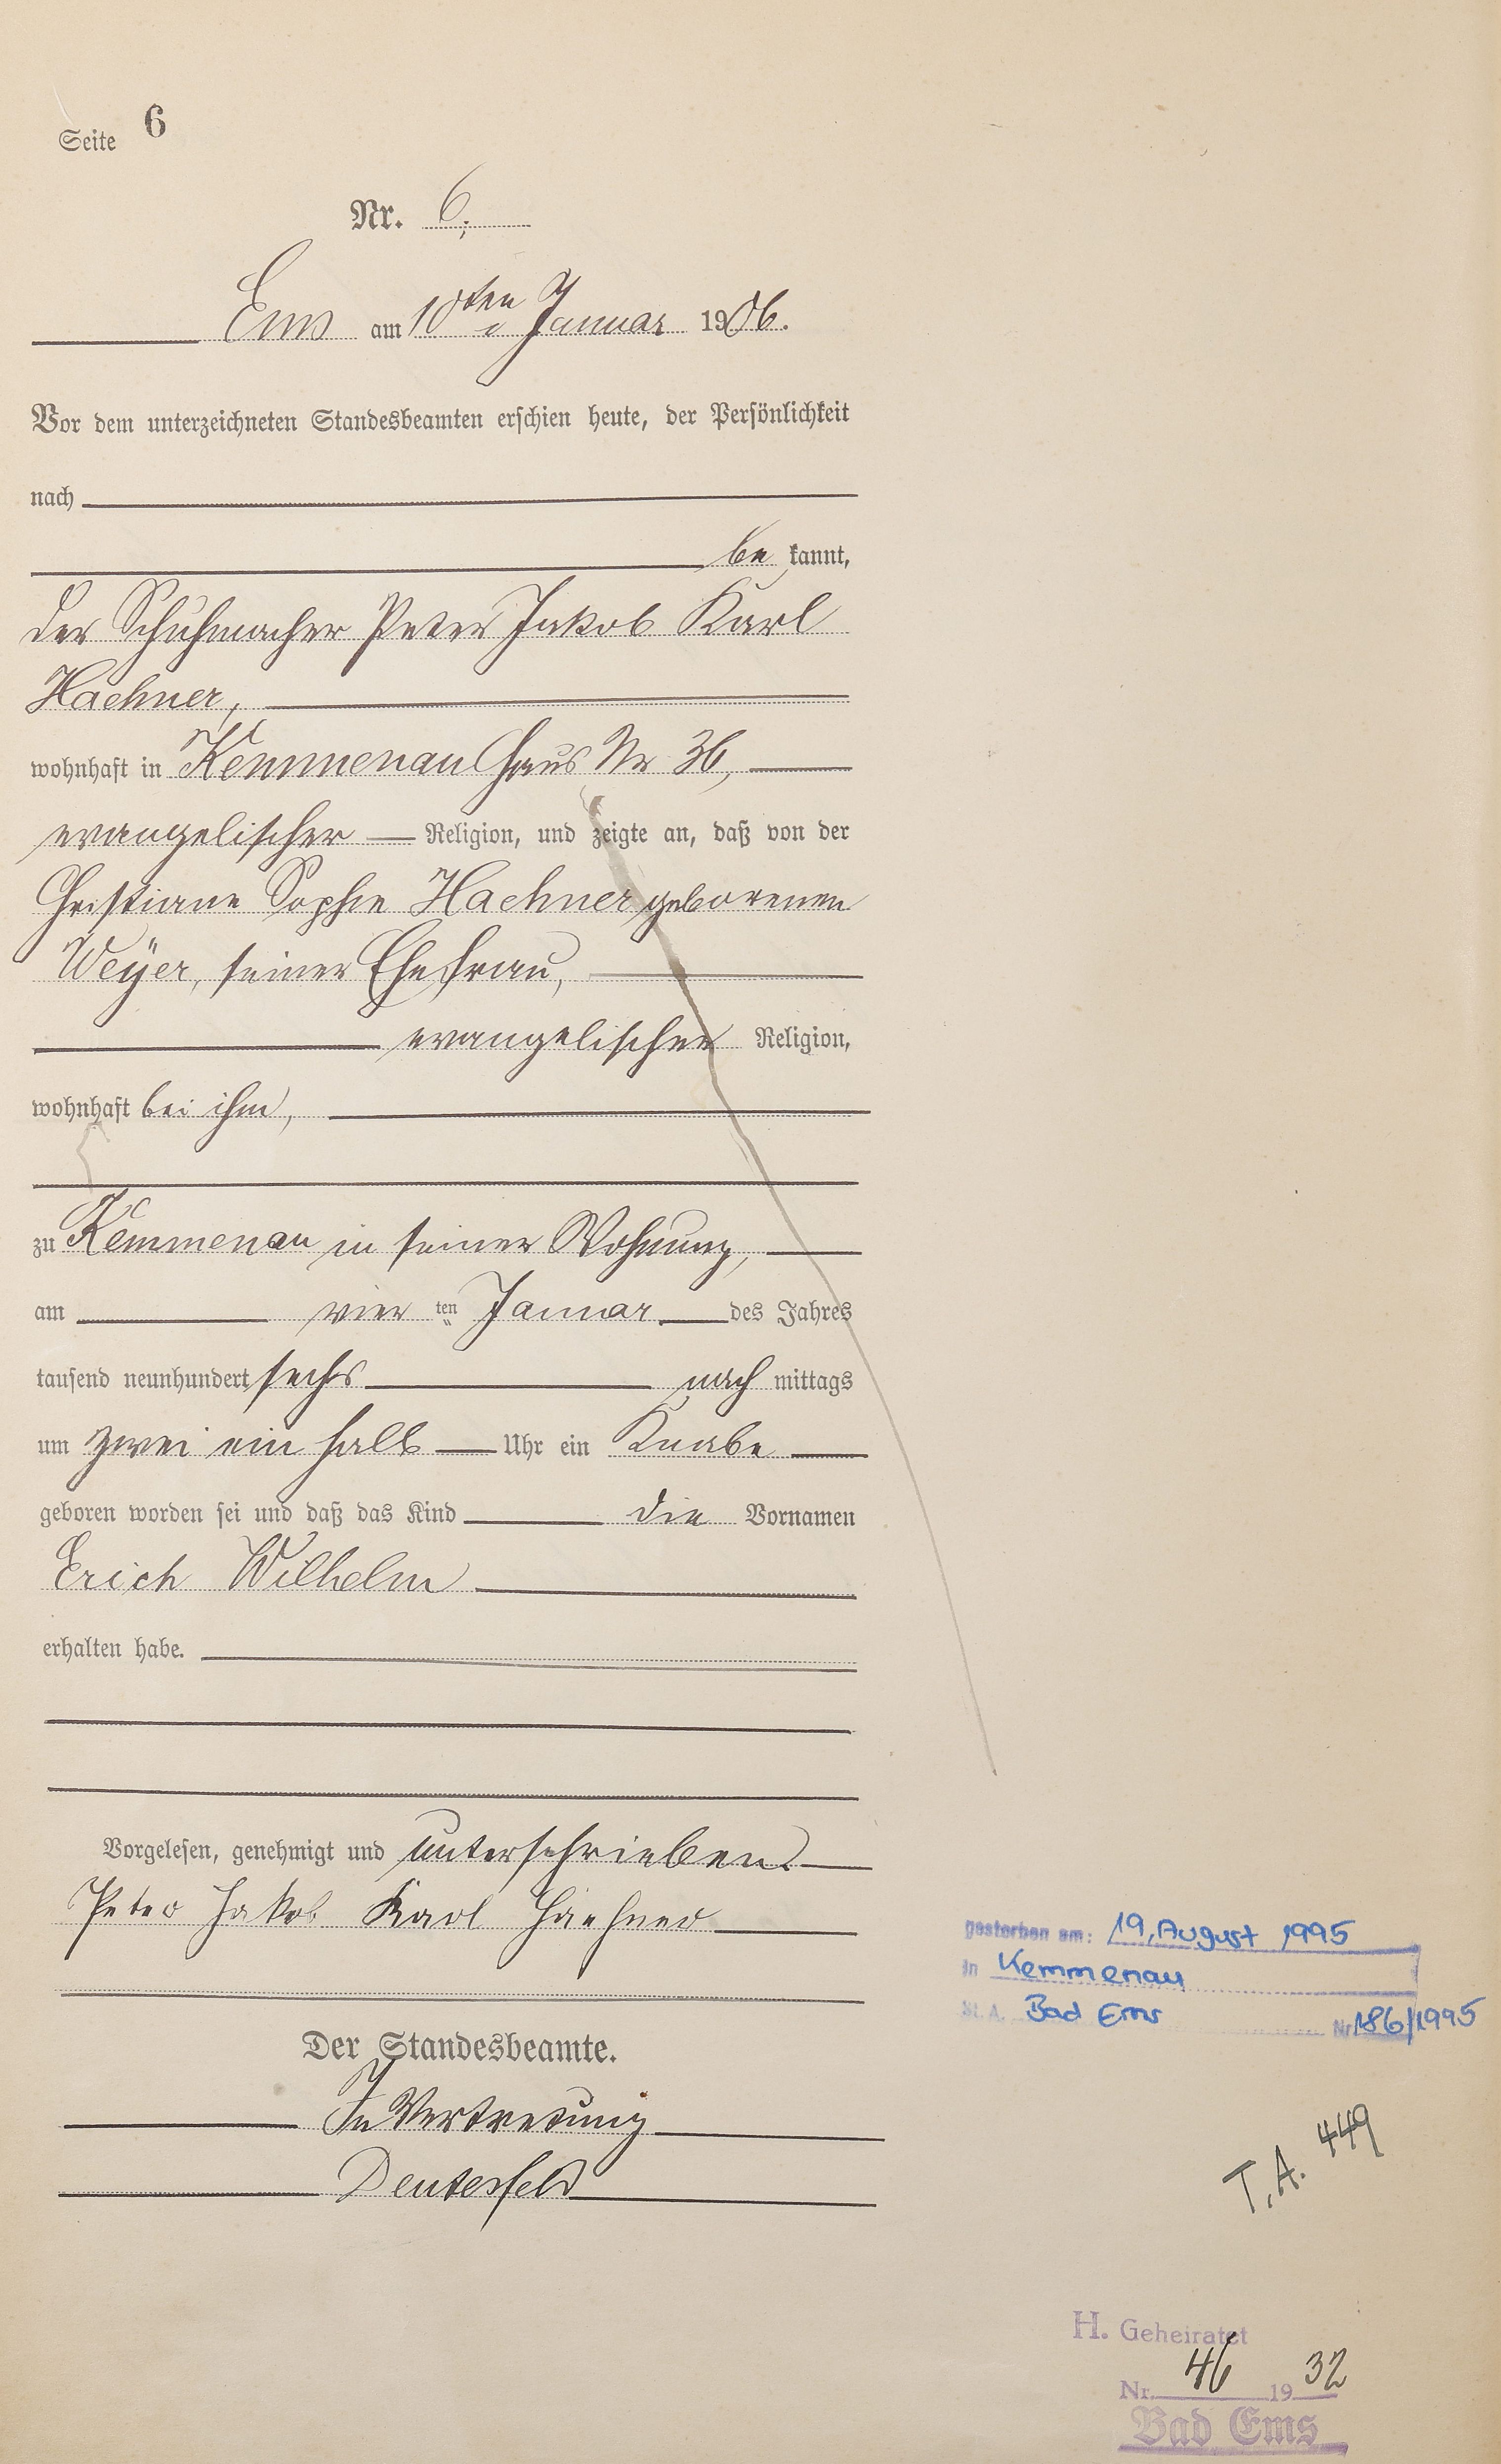 Seite 6
Nr. 6.
Ems am 10ten Januar 1906.
Vor dem unterzeichneten Standesbeamten erschien heute, der Persönlichkeit
nach
be kannt,
der Schuhmacher Peter Jakob Karl
Haehner,
wohnhaft in Kemmenau Haus Nr 36,
evangelischer Religion, und zeigte an, daß von der
Christiane Sophie Haehner geborenen
Weÿer, seiner Ehefrau,
evangelischer Religion,
wohnhaft bei ihm,
zu Kemmenau in seiner Wohnung,
am vier ten Januar des Jahres
tausend neunhundert sechs nach mittags
um zwei ein halb Uhr ein Knabe
geboren worden sei und daß das Kind die Vornamen
Erich Wilhelm
erhalten habe.
Vorgelesen, genehmigt und unterschrieben.
Peter Jakob Karl Haehner
Der Standesbeamte.
In Vertretung
Deutesfeld
gestorben am: 19. August 1995
in Kemmenau
St. A. Bad Ems Nr 186/1995
T.A. 449
H. Geheiratet
Nr. 46 1932
Bad Ems